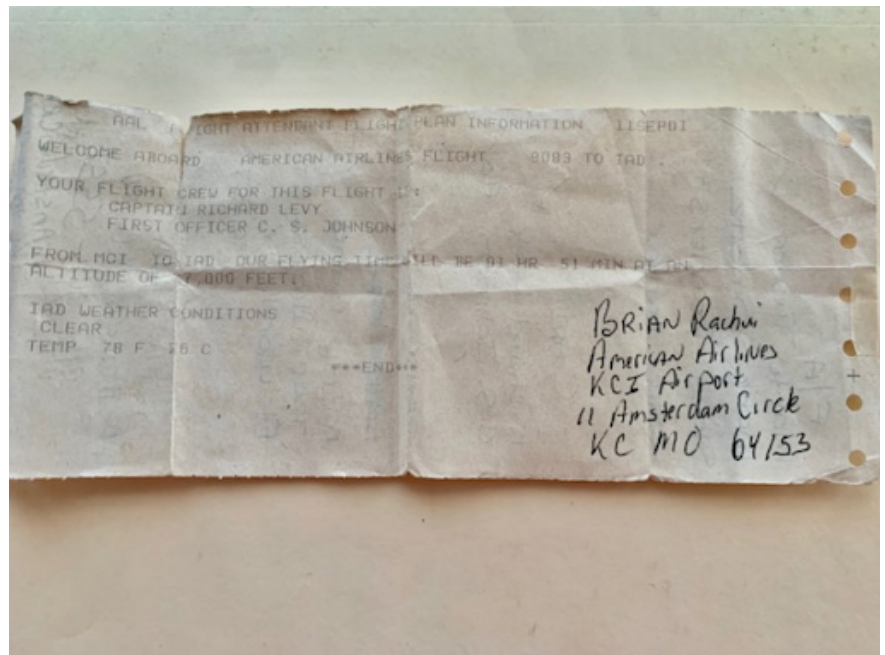 AAL FLIGHT ATTENDANT FLIGHT PLAN INFORMATION 11SEP01
WELCOME ABOARD AMERICAN AIRLINES FLIGHT 8083 TO IAD .
YOUR FLIGHT CREW FOR THIS FLIGHT IS:
CAPTAIN RICHARD LEVY
FIRST OFFICER C. S. JOHNSON
FROM MCI TO IAD OUR FLYING TIME WILL BE 01 HR 51 MIN AT AN
ALTITUDE OF 7,000 FEET.
IAD WEATHER CONDITIONS
CLEAR
TEMP 78 F 26 C
***END***
BRIAN
American Airlines
KCI Airport
11 Amsterdam Circle
KC MO 64153